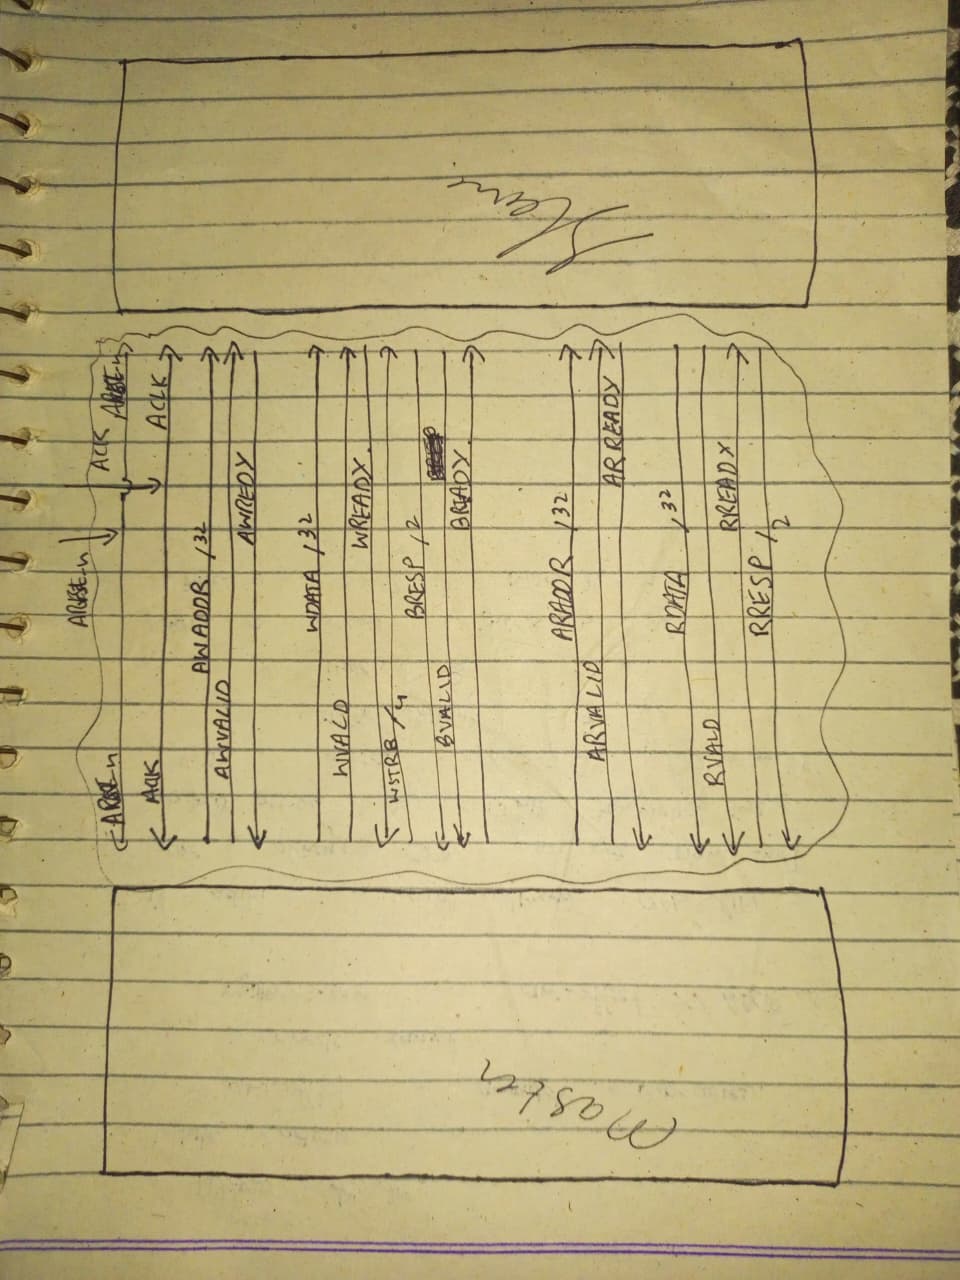 Master
ARESET_n
ACK
ARESET_n
ACLK
ARESET_n
ACK
AWADDR /32
AWVALID
AWREDY
WDATA /32
WVALID
WREADY
WSTRB /4
BRESP /2
BVALID
BREADY
ARADDR /32
ARVALID
ARREADY
RDATA /32
RVALD
RREADY
RRESP /2